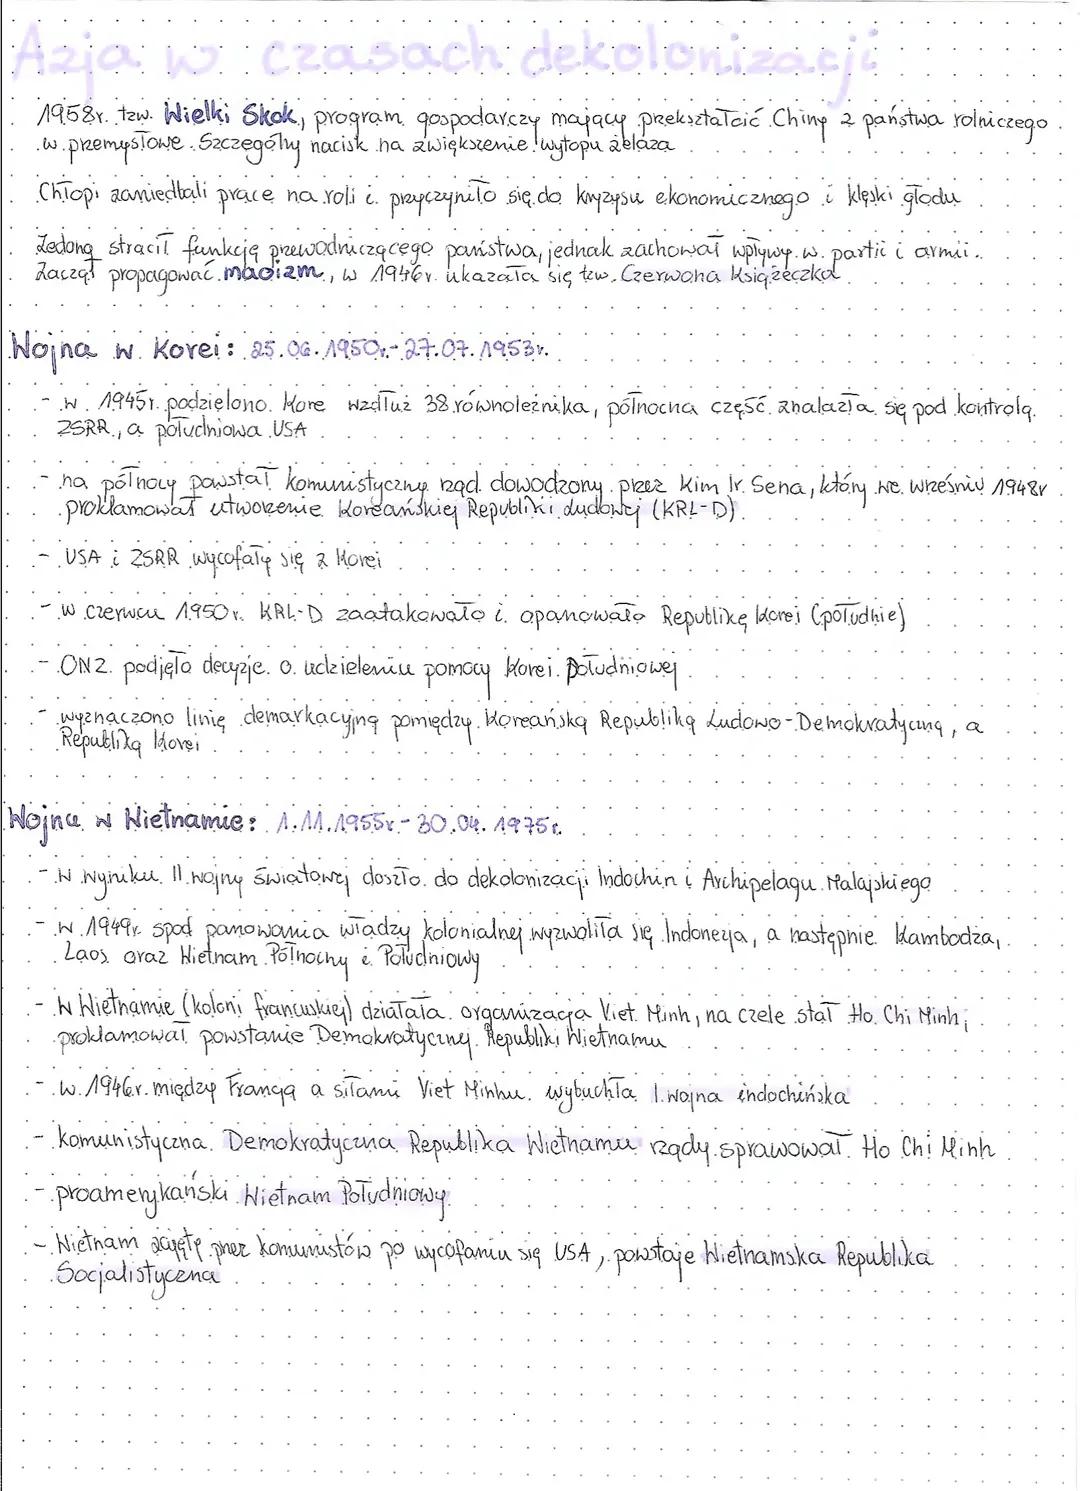 Azja w czasach dekolonizacji
1958r. tzw. Wielki Skok, program gospodarczy mający przekształcić Chiny z państwa rolniczego
w przemysłowe. Szczególny nacisk na zwiększenie wytopu żelaza
Chłopi zaniedbali pracę na roli i przyczyniło się do kryzysu ekonomicznego i klęski głodu
Zedong stracił funkcję przewodniczącego państwa, jednak zachował wpływy w partii i armii.
Zaczął propagować maoizm, w 1946r. ukazała się tzw. Czerwona Książeczka
Wojna w Korei: 25.06.1950r.-27.07.1953r.
- w 1945r. podzielono Kore wzdłuż 38 równoleżnika, północna część znalazła się pod kontrolą
ZSRR, a południowa USA
- na północy powstał komunistyczny rząd dowodzony przez Kim Ir Sena, który we wrześniu 1948r
proklamował utworzenie Koreańskiej Republiki Ludowej (KRL-D)
- USA i ZSRR wycofały się z Korei
- w czerwcu 1950r. KRL-D zaatakowało i opanowało Republikę Korei (południe)
- ONZ podjęło decyzje o udzieleniu pomocy Korei Południowej
- wyznaczono linię demarkacyjną pomiędzy Koreańską Republiką Ludowo-Demokratyczną, a
Republiką Korei
Wojna w Wietnamie: 1.11.1955r.-30.04.1975r.
- W wyniku II wojny światowej doszło do dekolonizacji Indochin i Archipelagu Malajskiego
- w 1949r. spod panowania władzy kolonialnej wyzwoliła się Indonezja, a następnie Kambodża,
Laos oraz Wietnam Północny i Południowy
- W Wietnamie (koloni francuskiej) działała organizacja Viet Minh, na czele stał Ho Chi Minh;
proklamował powstanie Demokratycznej Republiki Wietnamu
- w 1946r. między Francją a siłami Viet Minhu wybuchła I wojna indochińska
- komunistyczna Demokratyczna Republika Wietnamu rządy sprawował Ho Chi Minh
- proamerykański Wietnam Południowy
- Wietnam zajęty przez komunistów po wycofaniu się USA, powstaje Wietnamska Republika
Socjalistyczna